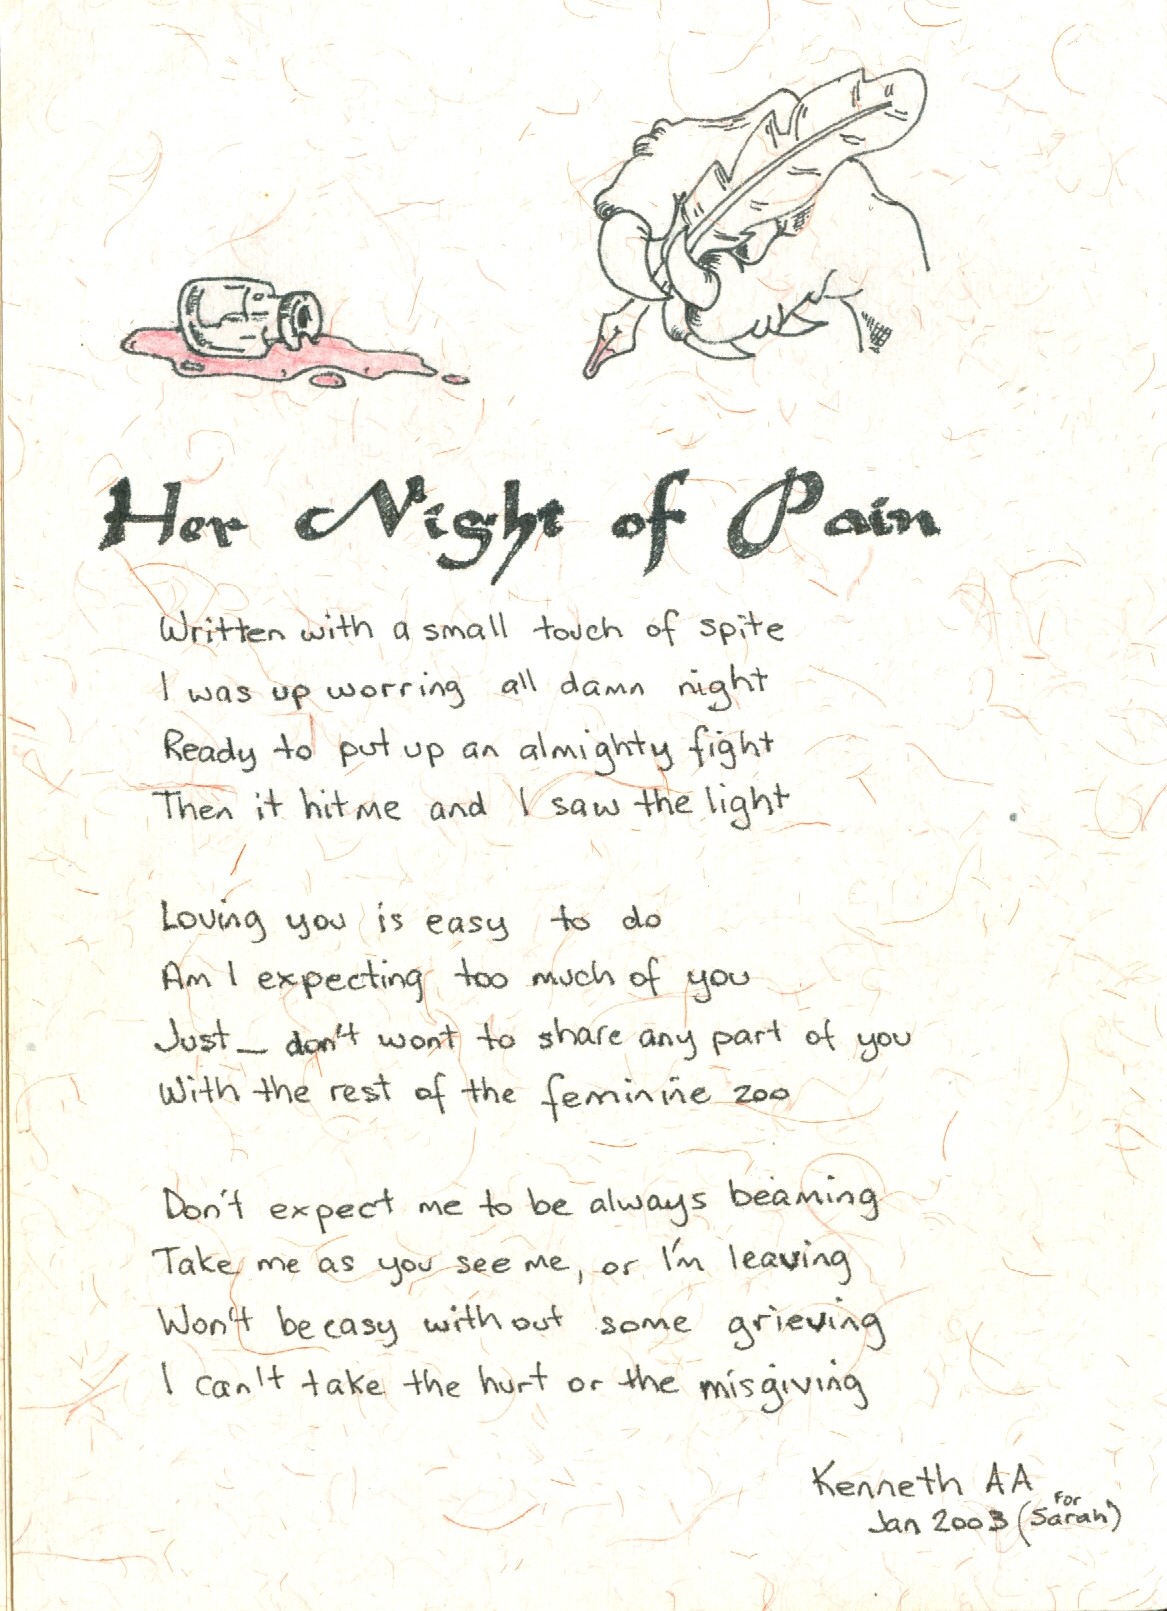 Her Night of Pain
Written with a small touch of spite
I was up worring all damn night
Ready to put up an almighty fight
Then it hit me and I saw the light
Loving you is easy to do
Am I expecting too much of you
Just _ don't wont to share any part of you
With the rest of the feminine zoo
Don't expect me to be always beaming
Take me as you see me, or I'm leaving
Won't be easy without some grieving
I can't take the hurt or the misgiving
Kenneth AA
Jan 2003 (for Sarah)